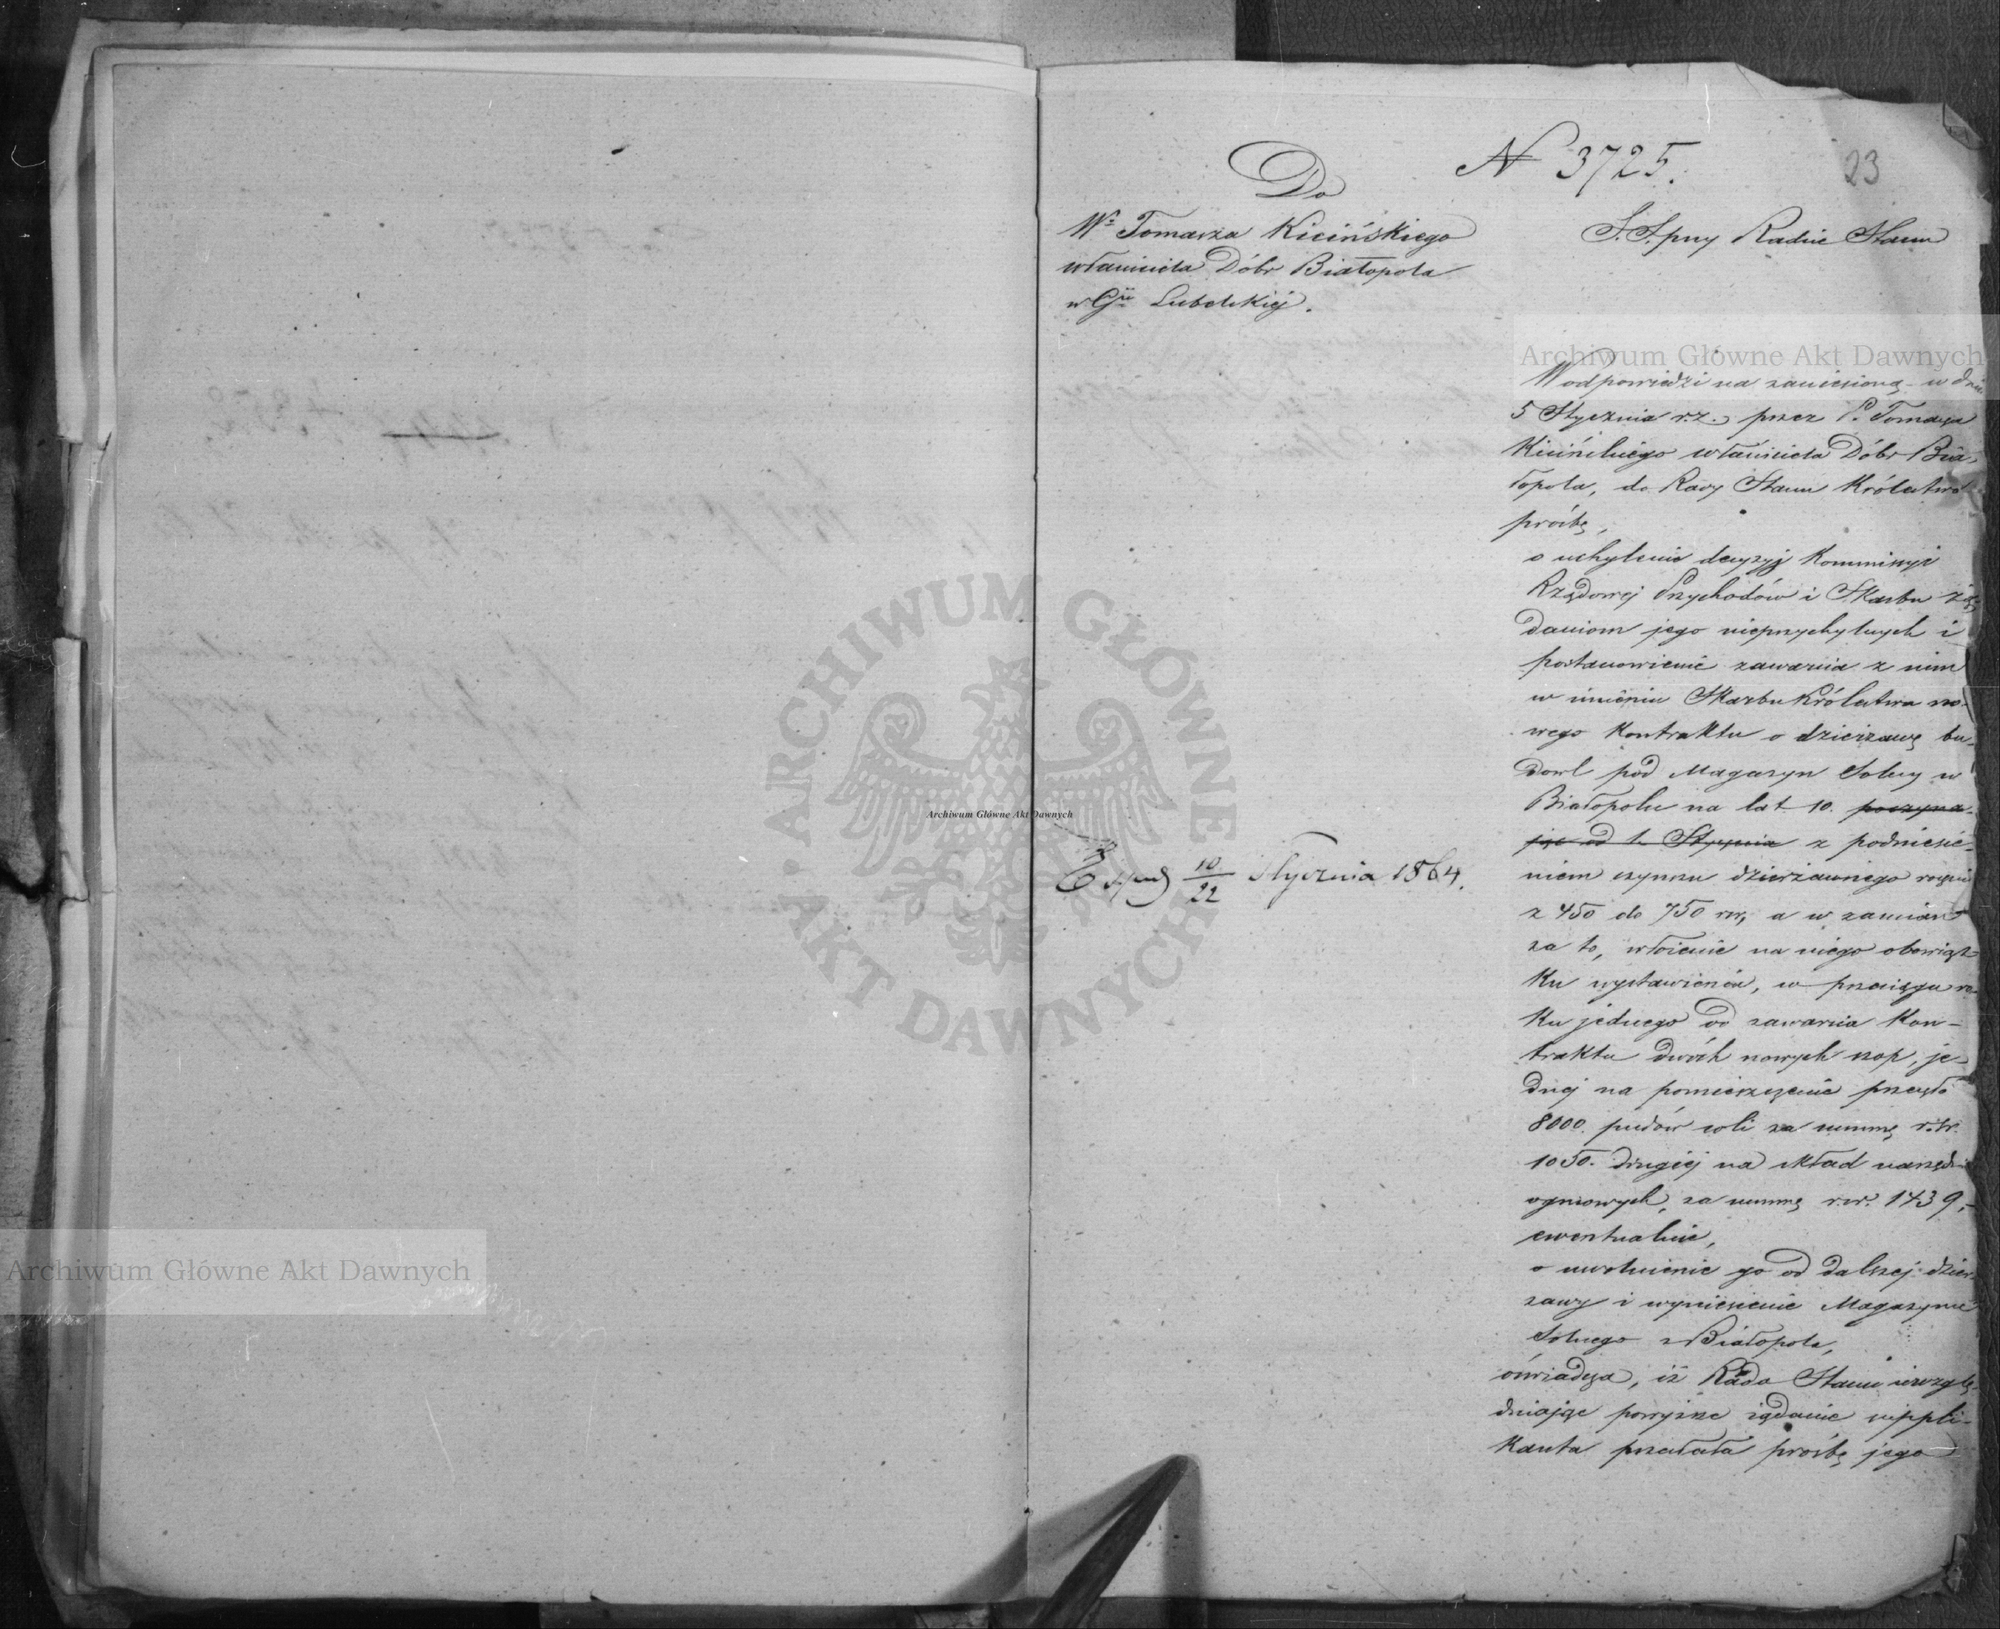 N 3725.
23
Do
Wº Tomasza Kicińskiego
właściciela Dóbr Białopola
w Gii Lubelskiej.
S. S. przy Radzie Stanu
W odpowiedzi na zaniesioną w dniu
5 Stycznia r.z. przez P. Tomasza
Kicińskiego właściciela Dóbr Bia-
łopola, do Rady Stanu Królestwa
prośbę,
o uchylenie decyzyj Kommissyi
Rządowej Przychodów i Skarbu żą-
daniom jego nieprzychylnych i
postanowienie zawarcia z nim
w imieniu Skarbu Królestwa no-
wego Kontraktu o dzierżawę bu-
dowl pod Magazyn Solny w
Białopolu na lat 10. poczyna-
jąc od 1. Stycznia z podniesie-
niem czynszu dzierżawnego
z 450 do 750 rsr, a w zamian
za to, włożenie na niego obowiąz-
ku wystawienia, w przeciągu ro-
ku jednego od zawarcia Kon-
traktu dwóch nowych szop, je-
dnej na pomieszczenie przeszło
8000 pudów soli za summę rsr.
1050. drugiej na skład narzędzi
ogniowych, za summę rsr. 1439,-
ewentualnie,
o uwolnienie go od dalszej dzier-
żawy i wyniesienie Magazynu
Solnego z Białopola,
oświadcza, iż Rada Stanu uwzglę-
dniając powyższe żądanie suppli-
kanta przesłała prośbę jego
Exped 10/22 Stycznia 1864.
Archiwum Główne Akt Dawnych
Archiwum Główne Akt Dawnych
Archiwum Główne Akt Dawnych
ARCHIWUM GŁÓWNE AKT DAWNYCH